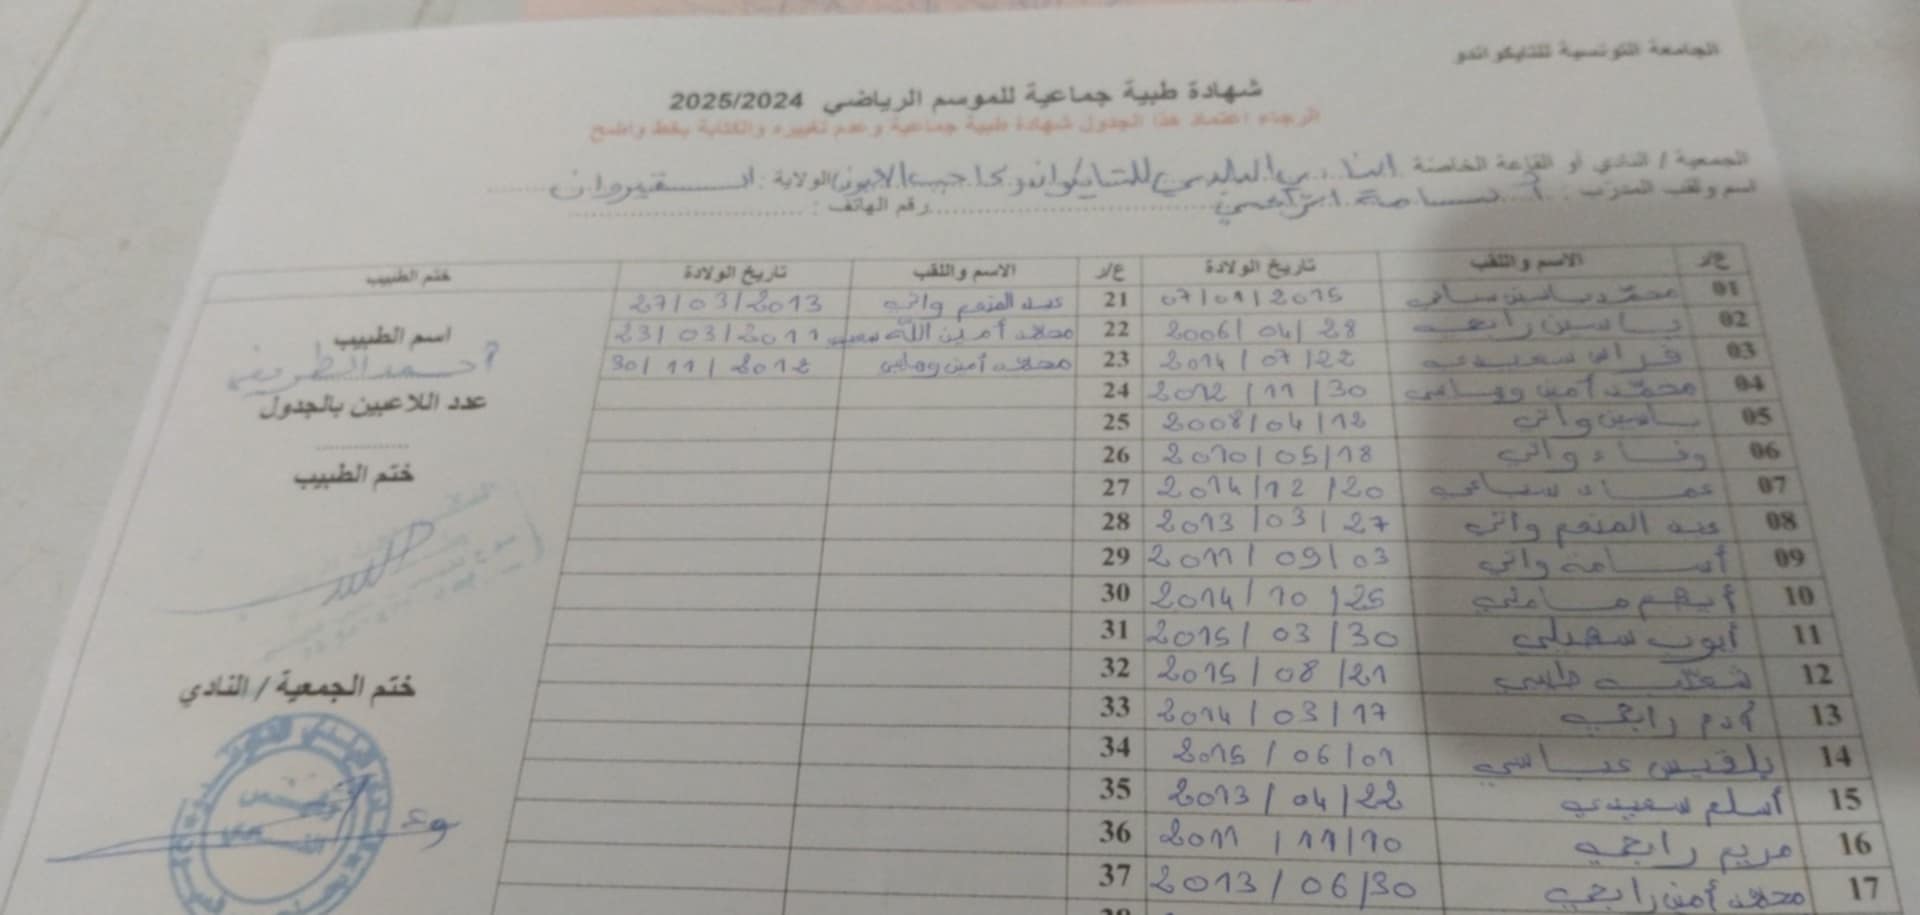 الجامعة التونسية للتايكواندو
شهادة طبية جماعية للموسم الرياضي 2025/2024
الرجاء اعتماد هذا الجدول شهادة طبية جماعية وعدم تغييره والكتابة بخط واضح
الجمعية / النادي أو القاعة الخاصة النادي البلدي للتايكواندو حاجب العيون الولاية : القيروان
اسم ولقب المدرب : أسامة رقم الهاتف :
ع/ر الاسم واللقب تاريخ الولادة ع/ر الاسم واللقب تاريخ الولادة ختم الطبيب
01 محمد ياسين سباعي 07/01/2015 21 عبد المنعم واني 27/03/2013
02 ياسين رابحي 2006/04/28 22 محمد أمين الله سعيدي 23/03/2011
03 فراس سعيدي 2014/07/22 23 محمد أمين وهابي 30/11/2012
04 محمد أمين وهابي 2012/11/30 24
05 ياسين واني 2008/04/12 25
06 وفاء واني 2010/05/18 26
07 عماد سباعي 2014/12/20 27
08 عبد المنعم واني 2013/03/27 28
09 أسامة واني 2011/09/03 29
10 أيهم 2014/10/25 30
11 أيوب سهيلي 2015/03/30 31
12 2015/08/21 32
13 آدم رابحي 2014/03/17 33
14 بلقيس عباسي 2015/06/01 34
15 أسلم سعيدي 2013/04/22 35
16 مريم رابحي 2011/11/10 36
17 محمد أمين رابحي 2013/06/30 37
اسم الطبيب
أحمد الطريفي
عدد اللاعبين بالجدول
ختم الطبيب
ختم الجمعية / النادي